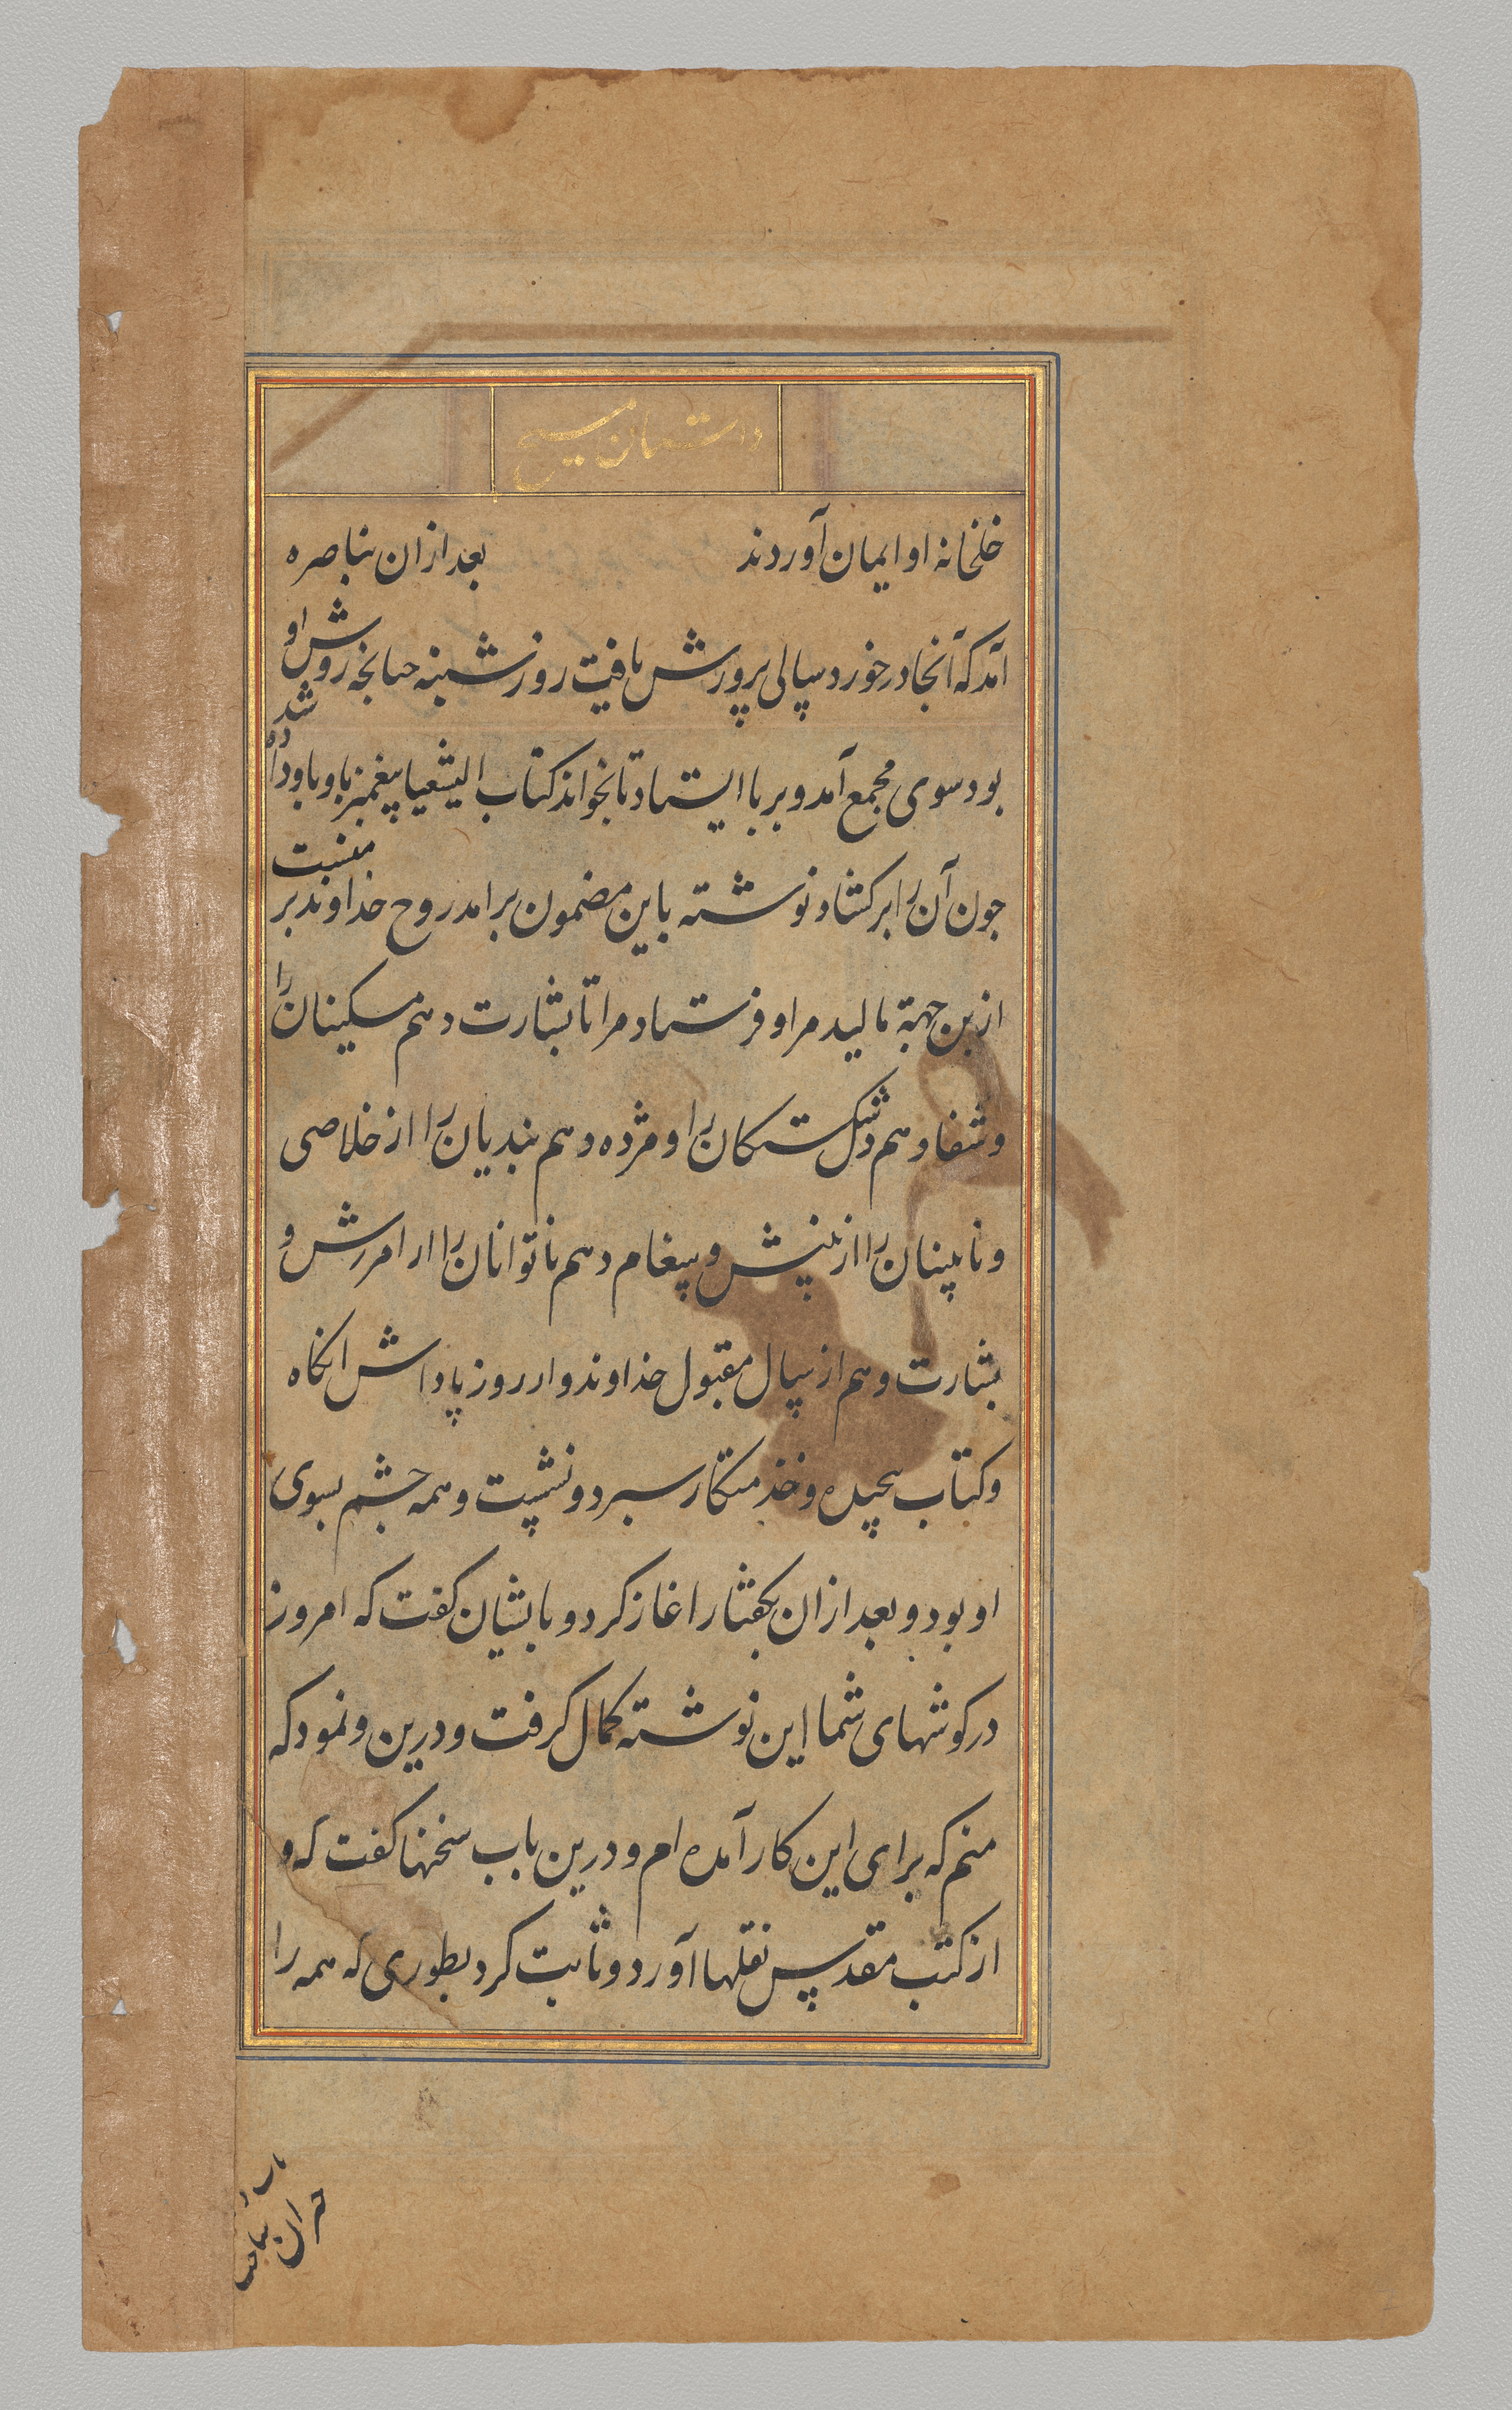 داستان مسیح
خلخانه او ایمان آوردند بعد ازان بناصره
آمد که آنجا در خورد سالی پرورش یافت روز شنبه چنانچه روش او
شد
بود سوی مجمع آمد و بر پا ایستاد تا بخواند کتاب الیشعیا پیغمبر باو باو داده
چون آن را برکشاد نوشته باین مضمون برامد روح خداوند بر منست
ازین جهة مالید مرا و فرستاد مرا تا بشارت دهم مسکینان را
و شفا دهم دلشکستکان را و مژده دهم بندیان را از خلاصی
و نابینان را از بینش و پیغام دهم ناتوانان را از امرزش و
بشارت دهم از سال مقبول خداوند و از روز پاداش انکاه
و کتاب پیچیده و خذمتکار سپرد و نشست و همه چشم بسوی
او بود و بعد ازان بکفتار اغاز کرد و بایشان کفت که امروز
در کوشهای شما این نوشته کمال کرفت و درین و نمود که
منم که برای این کار آمده ام و درین باب سخنها کفت که و
از کتب مقدس نقلها آورد و ثابت کرد بطوری که همه را